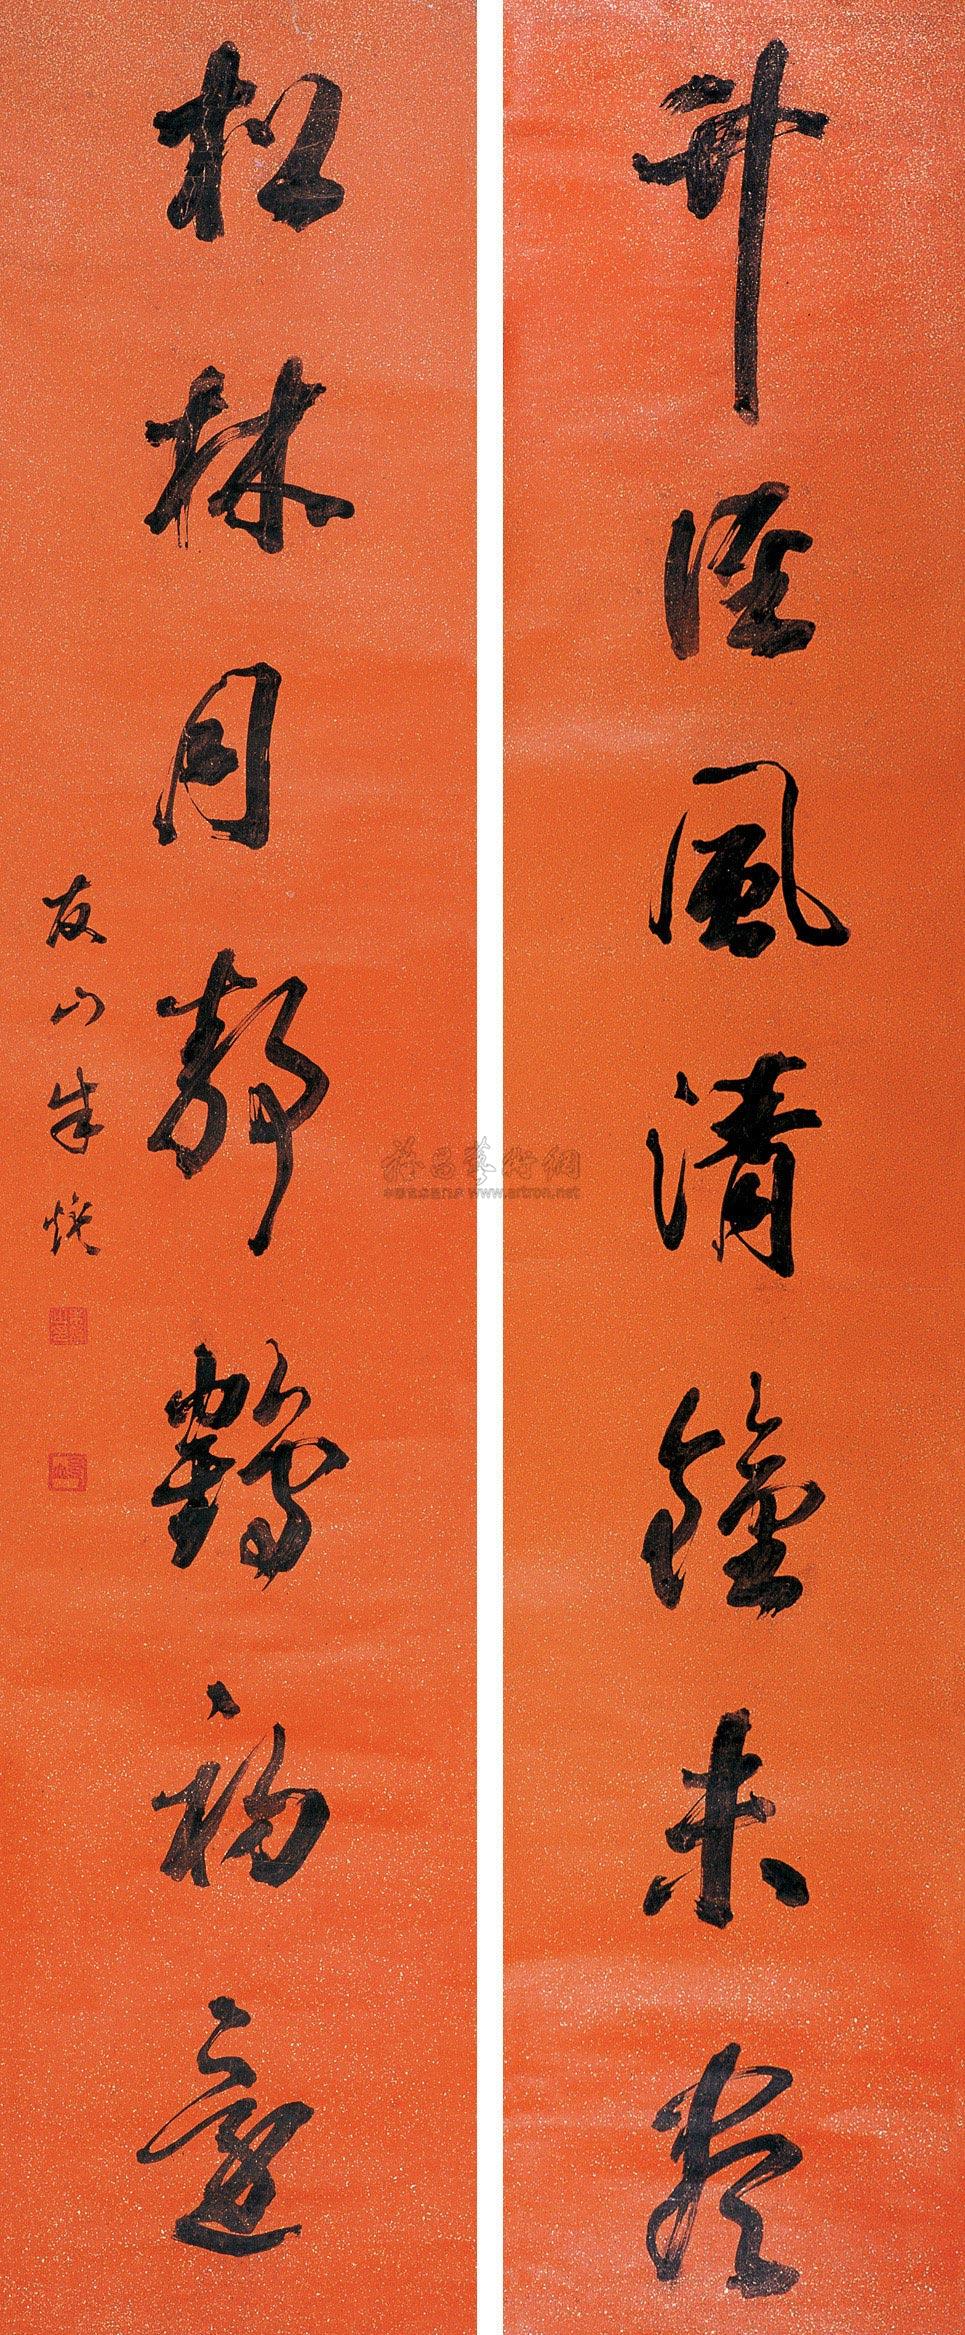 竹徑風清鐘未
松林月靜鶴初還
友山朱
雅昌藝術網
www.artron.net